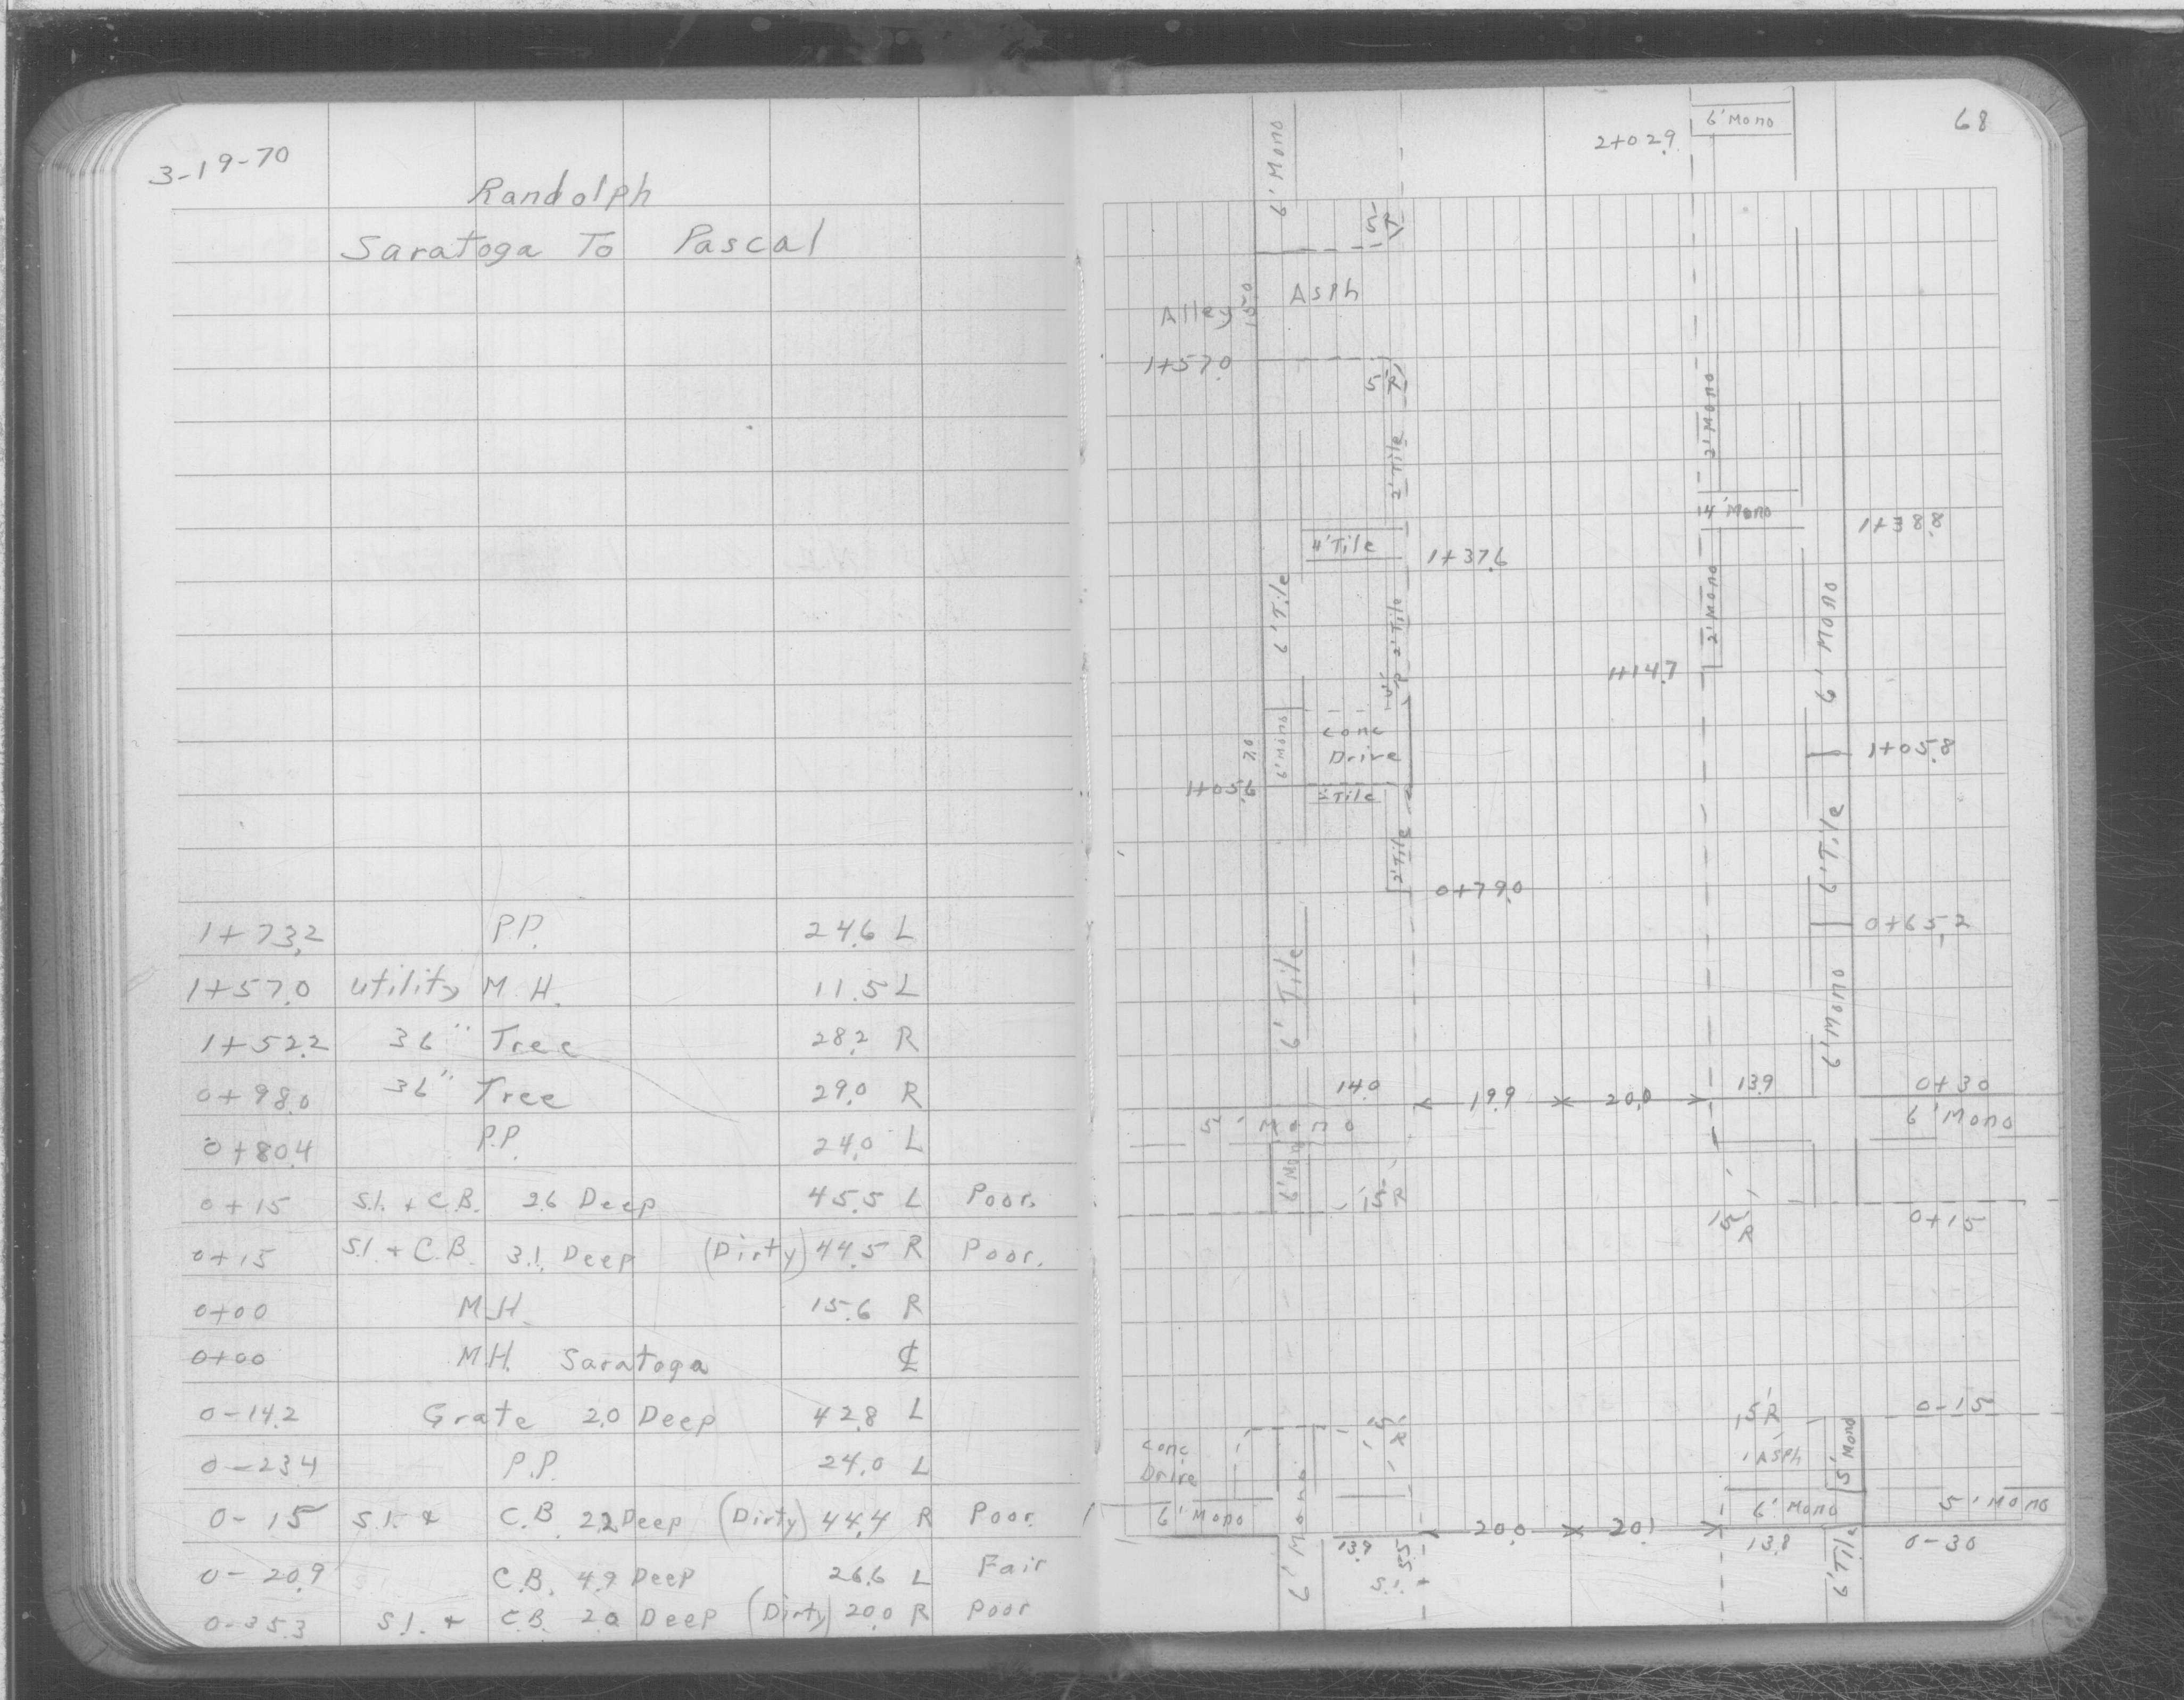 3-19-70
Randolph
Saratoga To Pascal
1+73.2 P.P. 24.6 L
1+57.0 utility M.H. 11.5 L
1+52.2 36" Tree 28.2 R
0+98.0 36" Tree 29.0 R
0+80.4 P.P. 24.0 L
0+15 S.I. + C.B. 2.6 Deep 45.5 L Poor.
0+15 S.I. + C.B. 3.1 Deep (Dirty) 44.5 R Poor.
0+00 M.H. 15.6 R
0+00 M.H. Saratoga ℄
0-14.2 Grate 2.0 Deep 42.8 L
0-23.4 P.P. 24.0 L
0-15 S.I. + C.B. 2.2 Deep (Dirty) 44.4 R Poor
0-20.9 C.B. 4.9 Deep 26.6 L Fair
0-35.3 S.I. + C.B. 2.0 Deep (Dirty) 20.0 R Poor
68
6' Mono
2+02.9
6' Mono
5' R
Alley 15.0 Asph
1+57.0
5' R
2' Mono
2' Tile
14' Mono
1+38.8
4' Tile
1+37.6
6' Tile
2' Tile
2' Mono
6' Mono
1+14.7
6' Mono
7.0
Conc
Drive
1+05.8
1+05.6
Tile
2' Tile
6' Tile
0+79.0
0+65.2
6' Tile
6' Mono
14.0 19.9 20.0 13.9 0+30
5' Mono
6' Mono
6' Mono
15' R
15' R
0+15
15' R
15' R
0-15
Conc
Drive
Asph
5' Mono
6' Mono
6' Mono
6' Mono
5' Mono
13.9 20.0 20.1 13.8 0-30
S.I. 5.5
6' Tile